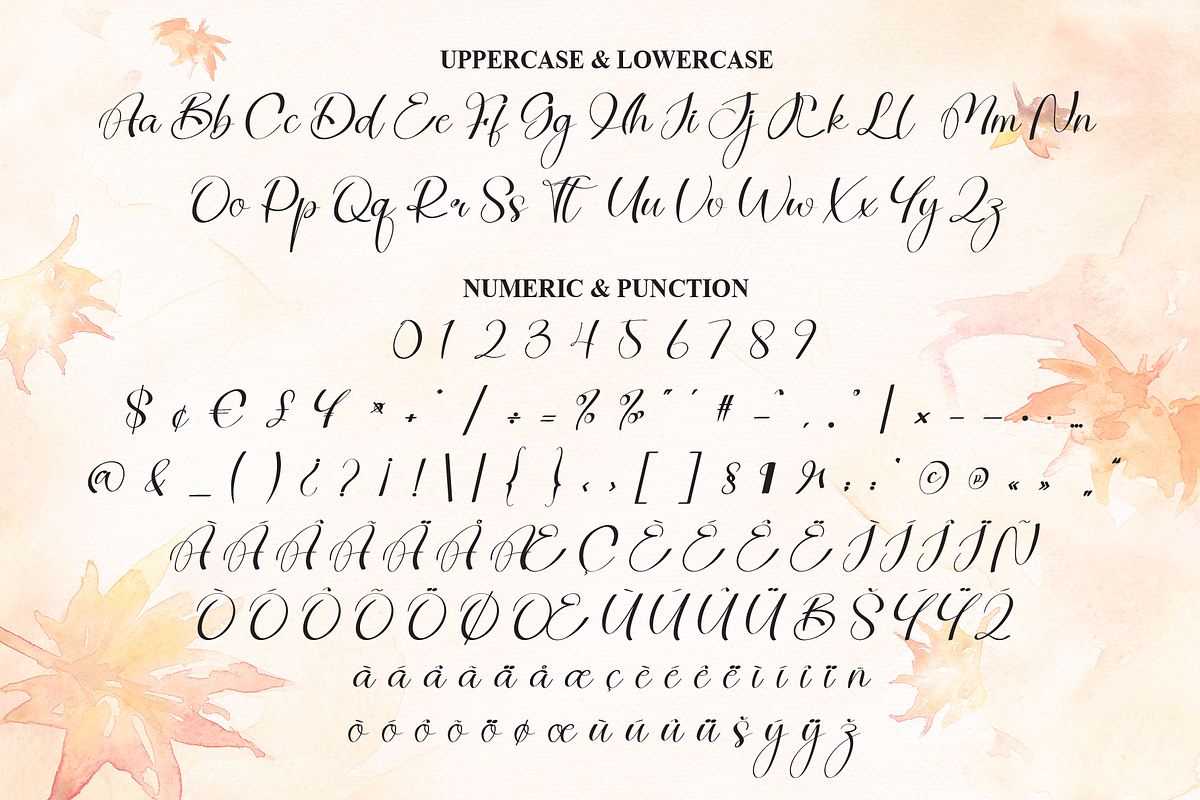 UPPERCASE & LOWERCASE
Aa Bb Cc Dd Ee Ff Gg Hh Ii Jj Kk Ll Mm Nn
Oo Pp Qq Rr Ss Tt Uu Vv Ww Xx Yy Zz
NUMERIC & PUNCTION
0 1 2 3 4 5 6 7 8 9
$ ¢ € £ ¥ * + / ÷ = % ‰ " ' # – ¸ . ° | × – — • · …
@ & _ ( ) ¿ ? ¡ ! \ | { } ‹ › [ ] § ¶ ; : © ® « » „ “
À Á Â Ã Ä Å Æ Ç È É Ê Ë Ì Í Î Ï Ñ
Ò Ó Ô Õ Ö Ø Œ Ù Ú Û Ü Š Ý Ÿ Ž
à á â ã ä å æ ç è é ê ë ì í î ï ñ
ò ó ô õ ö ø œ ù ú û ü š ý ÿ ž